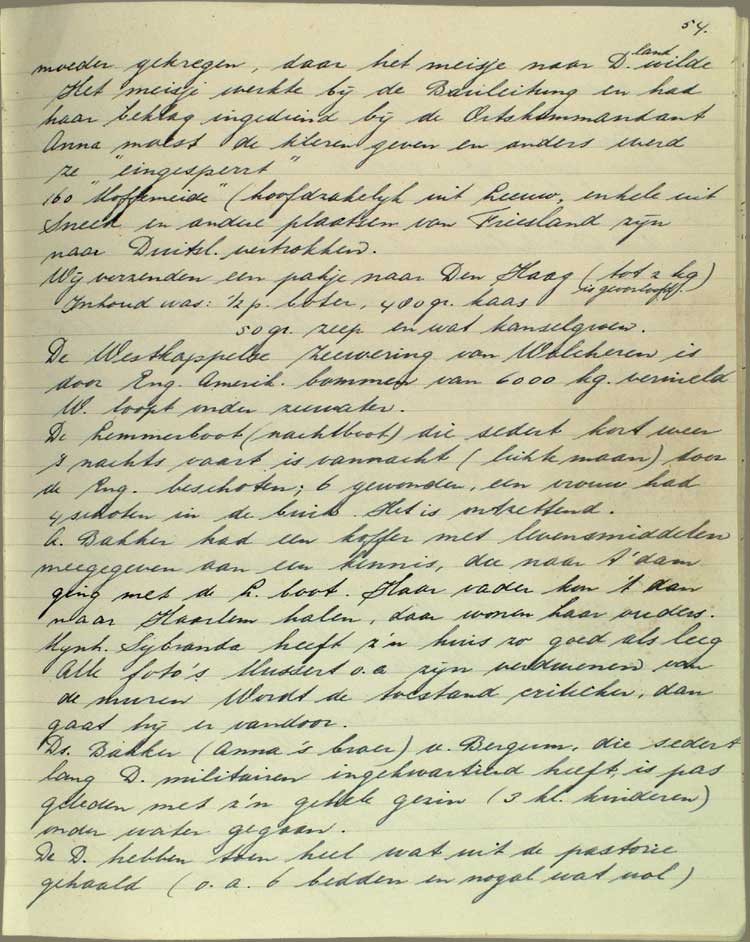 54.
moeder gekregen, daar het meisje naar D.land wilde
Het meisje werkte bij de Bauleitung en had
haar beklag ingediend bij de Ortskommandant
Anna moest de kleren geven en anders werd
ze "eingesperrt"
160 "Moffemeide" (hoofdzakelijk uit Leeuw, enkele uit
Sneek en andere plaatsen van Friesland zijn
naar Duitsl. vertrokken.
Wij verzenden een pakje naar Den Haag (tot 2 kg)
is geoorloofd.
Inhoud was: ½ p. boter, 480 gr. kaas
50 gr. zeep en wat kanselgroen.
De Westkappelse Zeewering van Walcheren is
door Eng. Amerik. bommen van 6000 kg. vernield
W. loopt onder zeewater.
De Lemmerboot (nachtboot) die sedert kort weer
's nachts vaart is vannacht (lichte maan) door
de Eng. beschoten; 6 gewonden, een vrouw had
4 schoten in de buik. Het is ontzettend.
A. Bakker had een koffer met levensmiddelen
meegegeven aan een kennis, die naar A'dam
ging met de L. boot. Haar vader kon 't dan
naar Haarlem halen, daar wonen haar ouders.
Sybranda heeft z'n huis zo goed als leeg
Alle foto's Mussert o.a zijn verdwenen van
de muren Wordt de toestand critieker, dan
gaat hij er vandoor.
Ds. Bakker (Anna's broer) v. Bergum, die sedert
lang D. militairen ingekwartierd heeft, is pas
geleden met z'n gehele gezin (3 kl. kinderen)
onder water gegaan.
De D. hebben toen heel wat uit de pastorie
gehaald (o.a. 6 bedden en nogal wat wol)